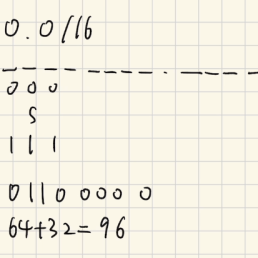 0.0/16
000
S
111
01100000
64+32=96